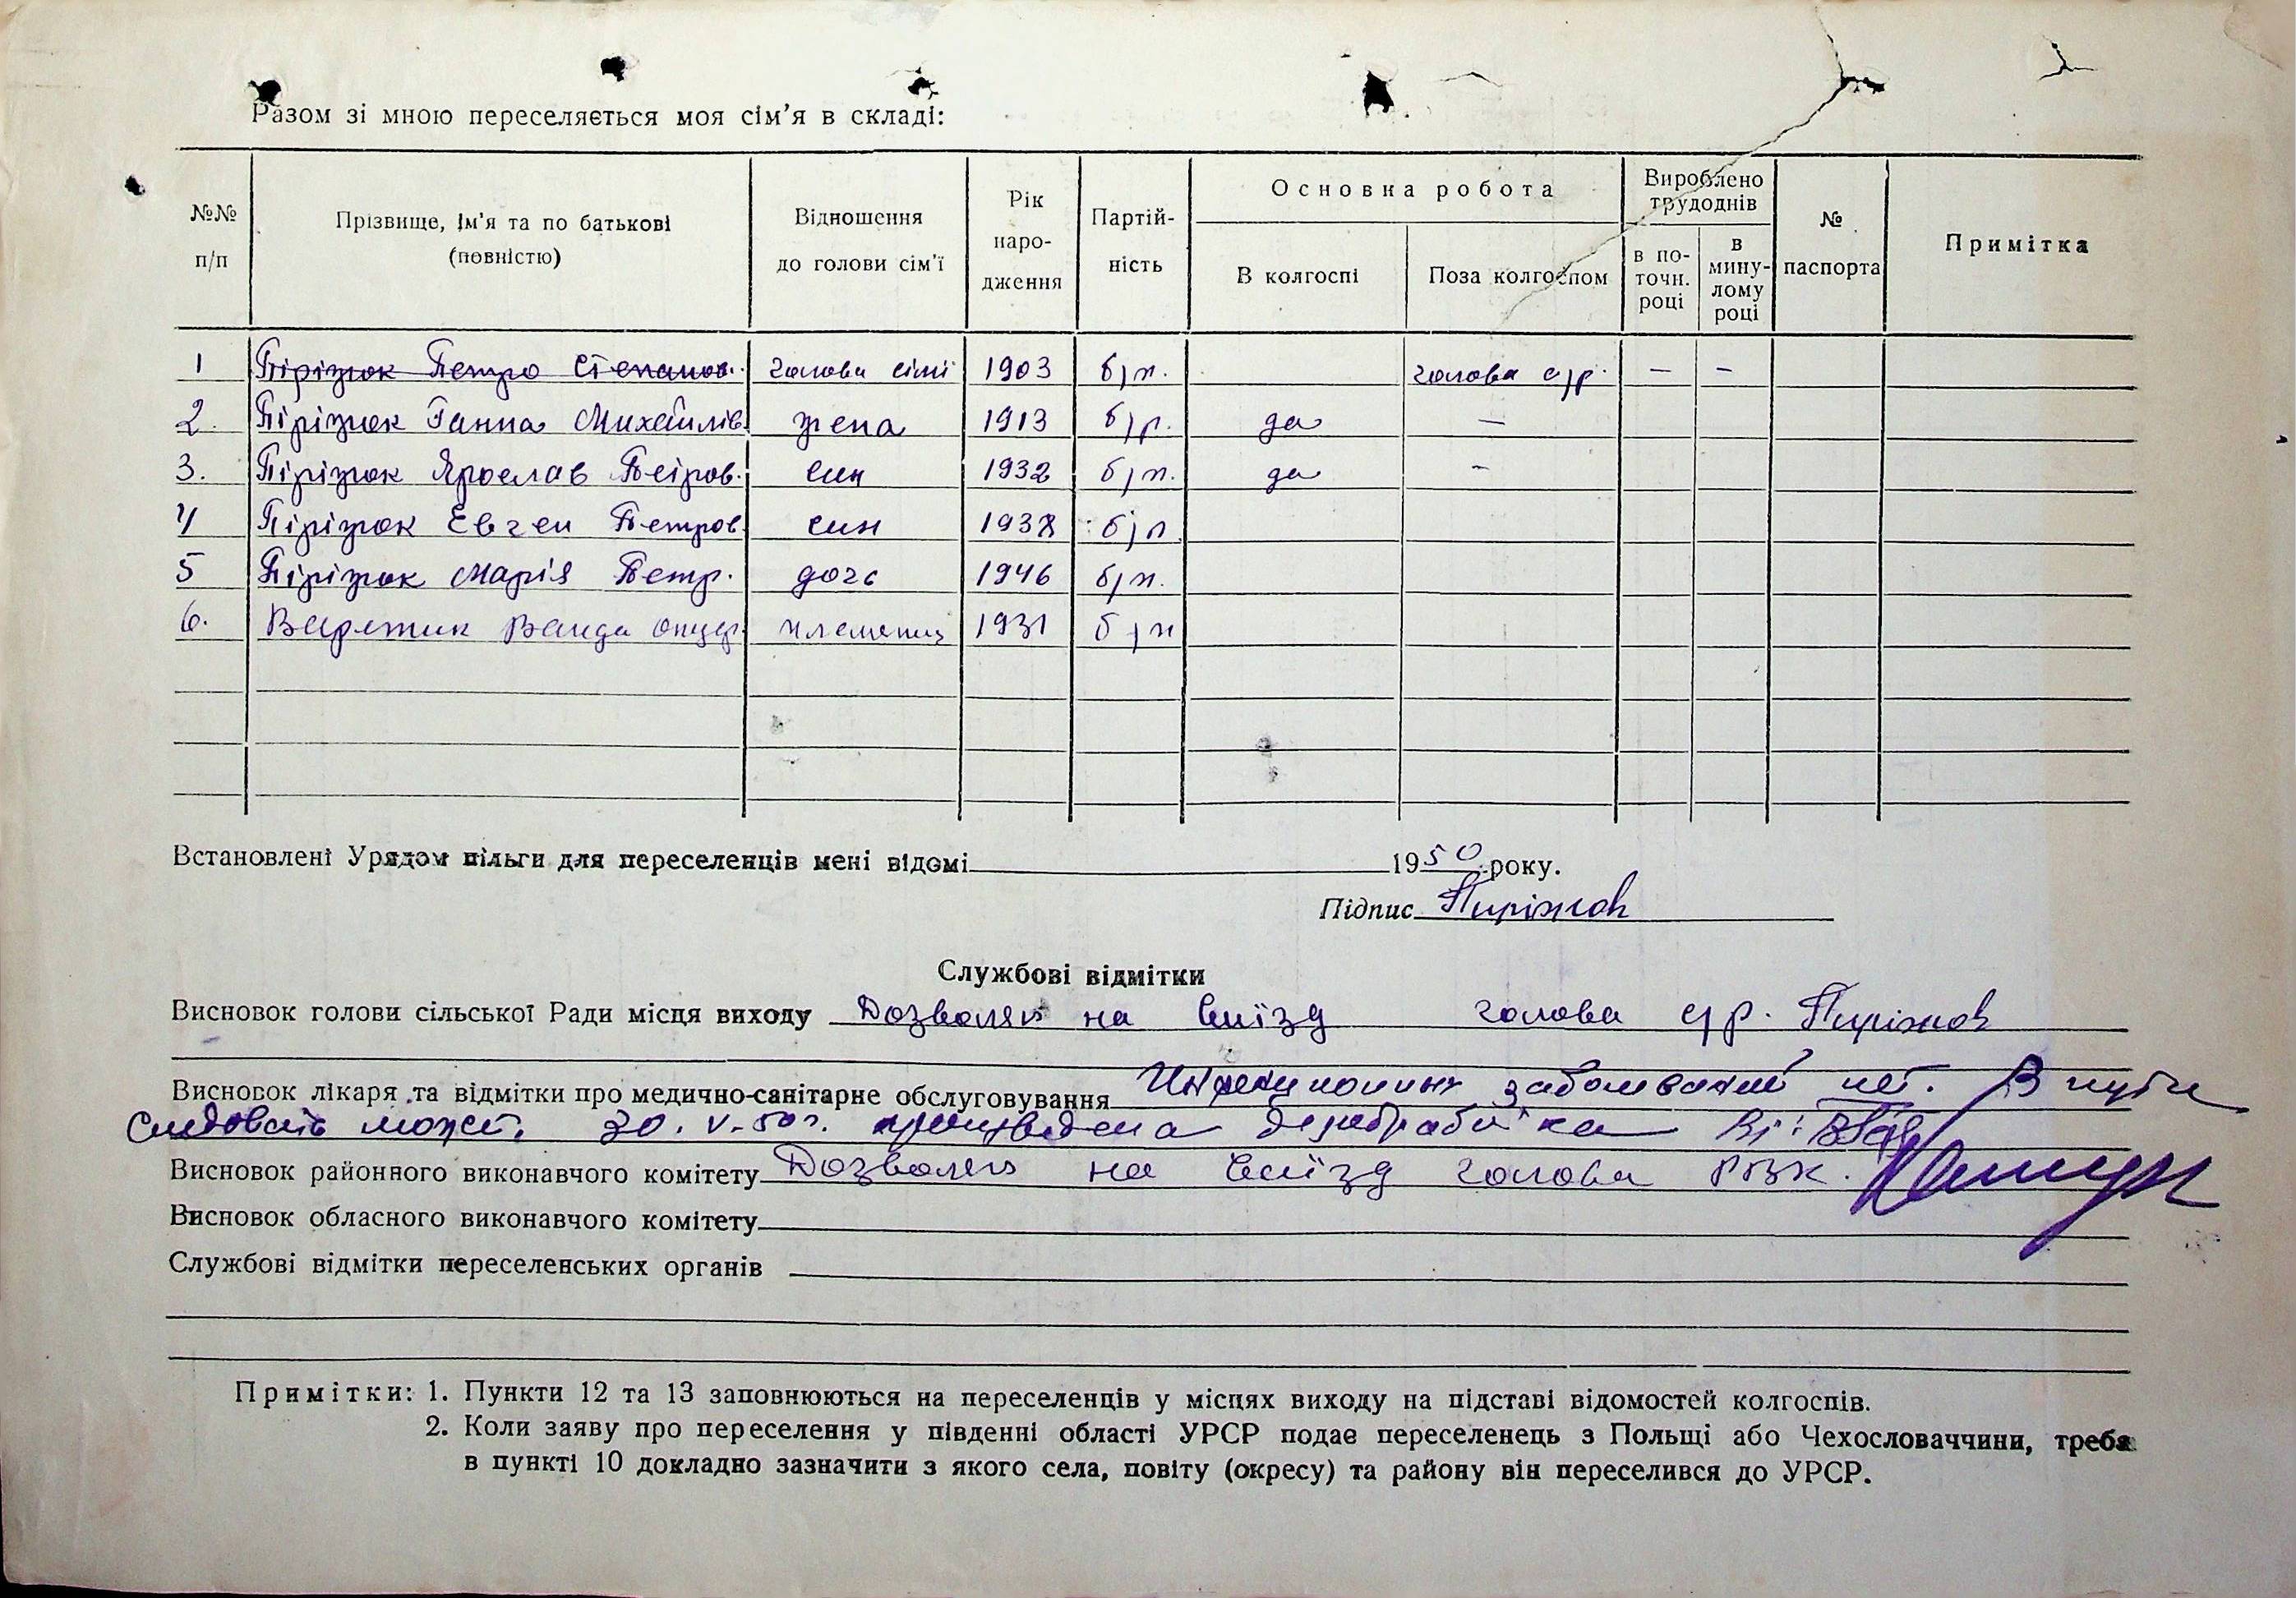 Разом зі мною переселяється моя сім'я в складі:
№№ п/п
Прізвище, ім'я та по батькові (повністю)
Відношення до голови сім'ї
Рік народження
Партійність
Основна робота
В колгоспі
Поза колгоспом
Вироблено трудоднів
в поточн. році
в минулому році
№ паспорта
Примітка
1 Пірізнок Петро Степанов. голова сімї 1903 б/п. голова с/р. — —
2. Пірізнок Ганна Михайлів. жена 1913 б/п. да —
3. Пірізнок Ярослав Петров. син 1932 б/п. да -
4 Пірізнок Евген Петров. син 1938 б/п
5 Пірізнок Марія Петр. дочь 1946 б/п.
6. Ванда 1931 б/п
Встановлені Урядом пільги для переселенців мені відомі 1950 року.
Підпис
Службові відмітки
Висновок голови сільської Ради місця виходу Дозволяю на виїзд голова с/р.
Висновок лікаря та відмітки про медично-санітарне обслуговування Инфекционных заболеваний нет. В пути
следовать может. 30.V-50 г. произведена
Висновок районного виконавчого комітету Дозволяю на виїзд голова РВК.
Висновок обласного виконавчого комітету
Службові відмітки переселенських органів
Примітки: 1. Пункти 12 та 13 заповнюються на переселенців у місцях виходу на підставі відомостей колгоспів.
2. Коли заяву про переселення у південні області УРСР подає переселенець з Польщі або Чехословаччини, треба
в пункті 10 докладно зазначити з якого села, повіту (окресу) та району він переселився до УРСР.